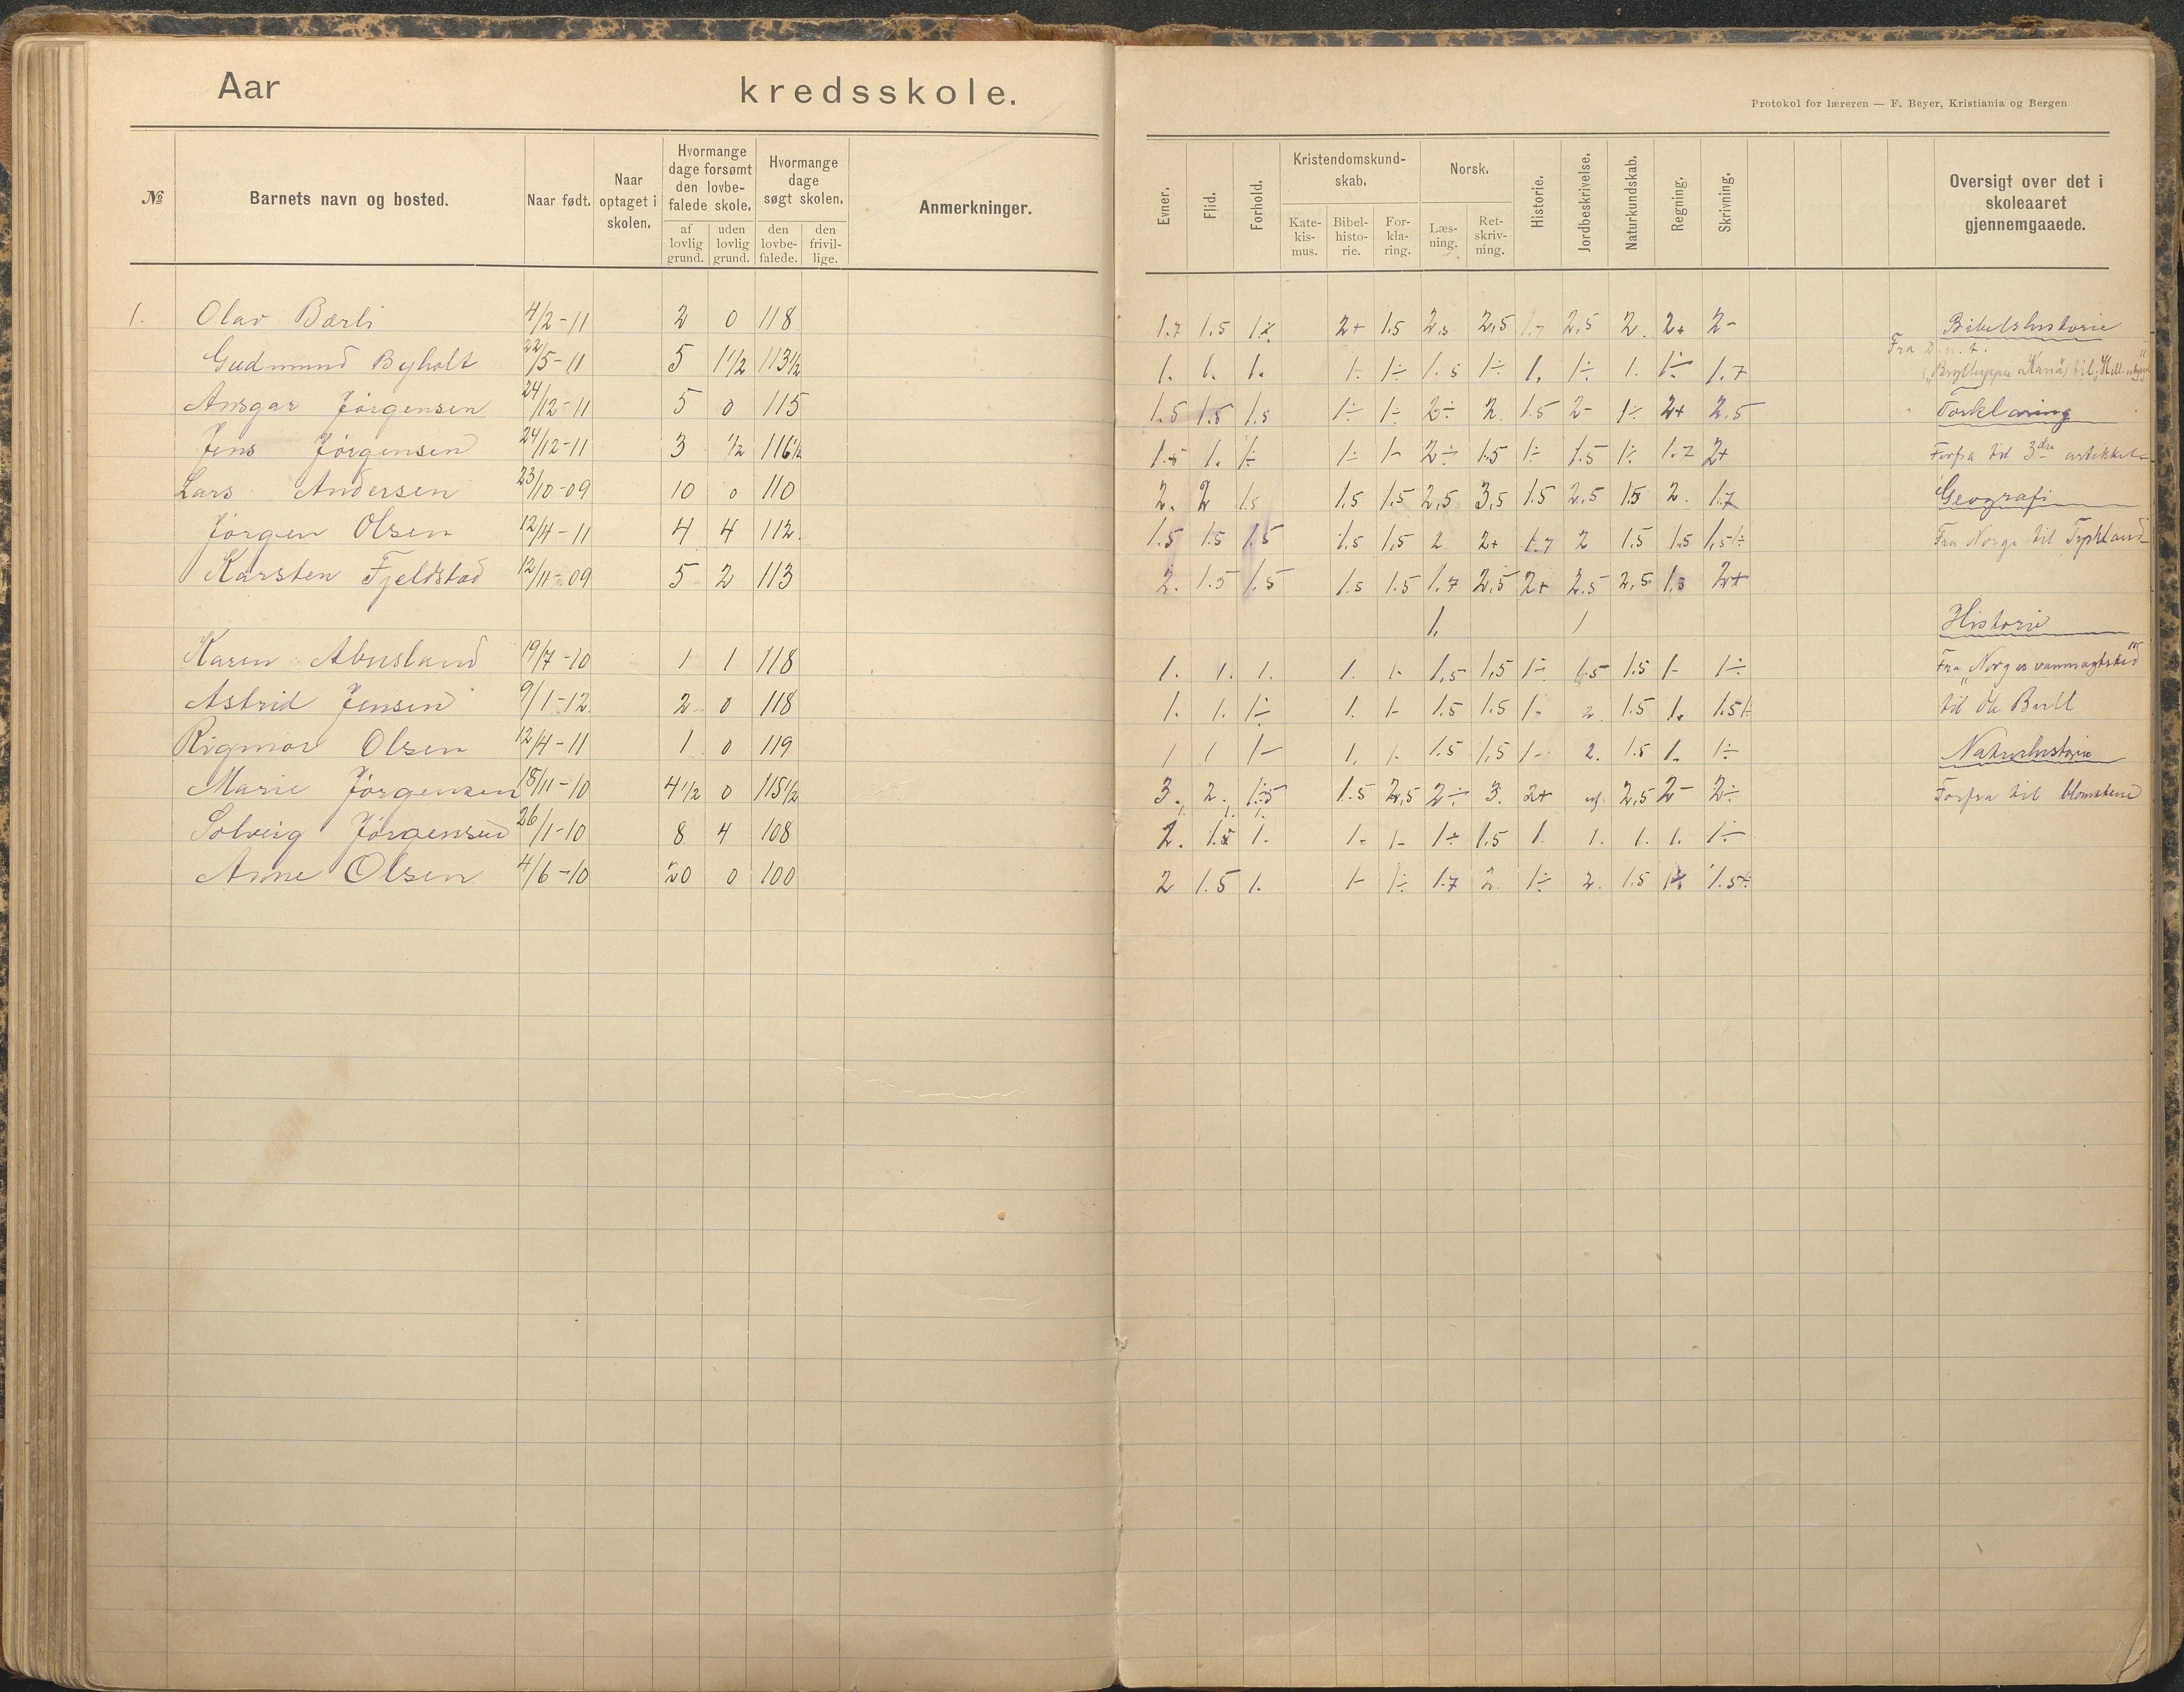 Aar kredsskole.
Protokol for læreren — F. Beyer, Kristiania og Bergen
№ Barnets navn og bosted. Naar født. Naar optaget i skolen. Hvormange dage forsømt den lovbefalede skole. af lovlig grund. uden lovlig grund. Hvormange dage søgt skolen. den lovbefalede. den frivillige. Anmerkninger.
Evner. Flid. Forhold. Kristendomskundskab. Katekismus. Bibelhistorie. Forklaring. Norsk. Læsning. Retskrivning. Historie. Jordbeskrivelse. Naturkundskab. Regning. Skrivning. Oversigt over det i skoleaaret gjennemgaaede.
1. Olav Bærli 4/2-11 2 0 118
Gudmund Byholt 22/5-11 5 1 1/2 113 1/2
Ansgar Jørgensen 24/12-11 5 0 115
Jens Jørgensen 24/12-11 3 1/2 116 1/2
Lars Andersen 23/10-09 10 0 110
Jørgen Olsen 12/4-11 4 4 112.
Karsten Fjeldstad 12/11-09 5 2 113
Karen Abusland 19/7-10 1 1 118
Astrid Jensen 9/1-12. 2 0 118
Rigmor Olsen 12/4-11 1 0 119
Marie Jørgensen 18/11-10 4 1/2 0 115 1/2
Solveig Jørgensen 26/1-10 8 4 108
Anne Olsen 4/6-10 20 0 100
1.7 1.5 2+ 1.5 2,5 2,5 2,5 2. 2+ 2-
1. 1. 1. 1. 1÷ 1.5 1÷ 1. 1÷ 1. 1÷ 1.7
1.5 1.5 1.5 1÷ 1÷ 2÷ 2. 1.5 2- 1÷ 2+ 2.5
1.5 1. 1÷ 1÷ 1- 2÷ 1.5 1÷ 1.5 1÷ 1.7 2+
2. 2 1.5 1.5 1.5 2,5 3,5 1.5 2,5 1.5 2. 1.7
1.5 1.5 1.5 1.5 1,5 2 2+ 1.7 2 1.5 1.5 1,5÷
2. 1.5 1.5 1.5 1.5 1.7 2,5 2+ 2.5 2,5 1,5 2+
1. 1
1. 1. 1. 1. 1. 1,5 1,5 1÷ 1.5 1.5 1- 1÷
1. 1. 1÷ 1. 1- 1.5 1.5 1- 2. 1.5 1. 1.5÷
1 1 1- 1. 1. 1.5 1,5 1- 2. 1.5 1. 1÷
3. 2. 1.5 1.5 2,5 2÷ 3. 2+ 2,5 2- 2÷
2. 1.5 1. 1. 1- 1÷ 1.5 1. 1. 1. 1. 1÷
2 1.5 1. 1- 1÷ 1.7 2. 1÷ 2. 1.5 1.5÷
Bibelshistorie
Fra D. n. t.
Forklaring
Forfra til 3die artikkel
Geografi
Fra Norge til Tyskland
Historie
Fra "Norges vanmagtstid"
til Ole Bull
Naturhistorie
Forfra til blomstene